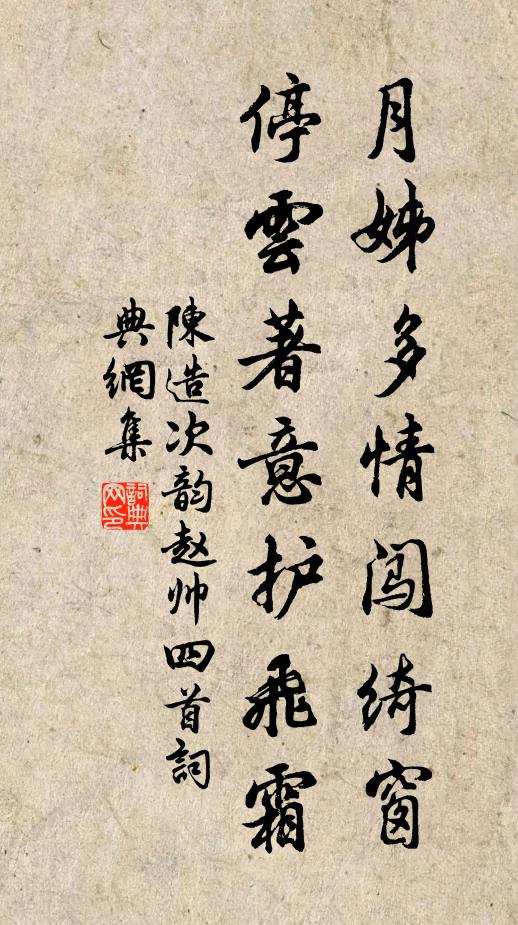 月姊多情闯绮窗
停雲著意护飛霜
陳造次韵赵帅四首詞
典網集
詞典网印